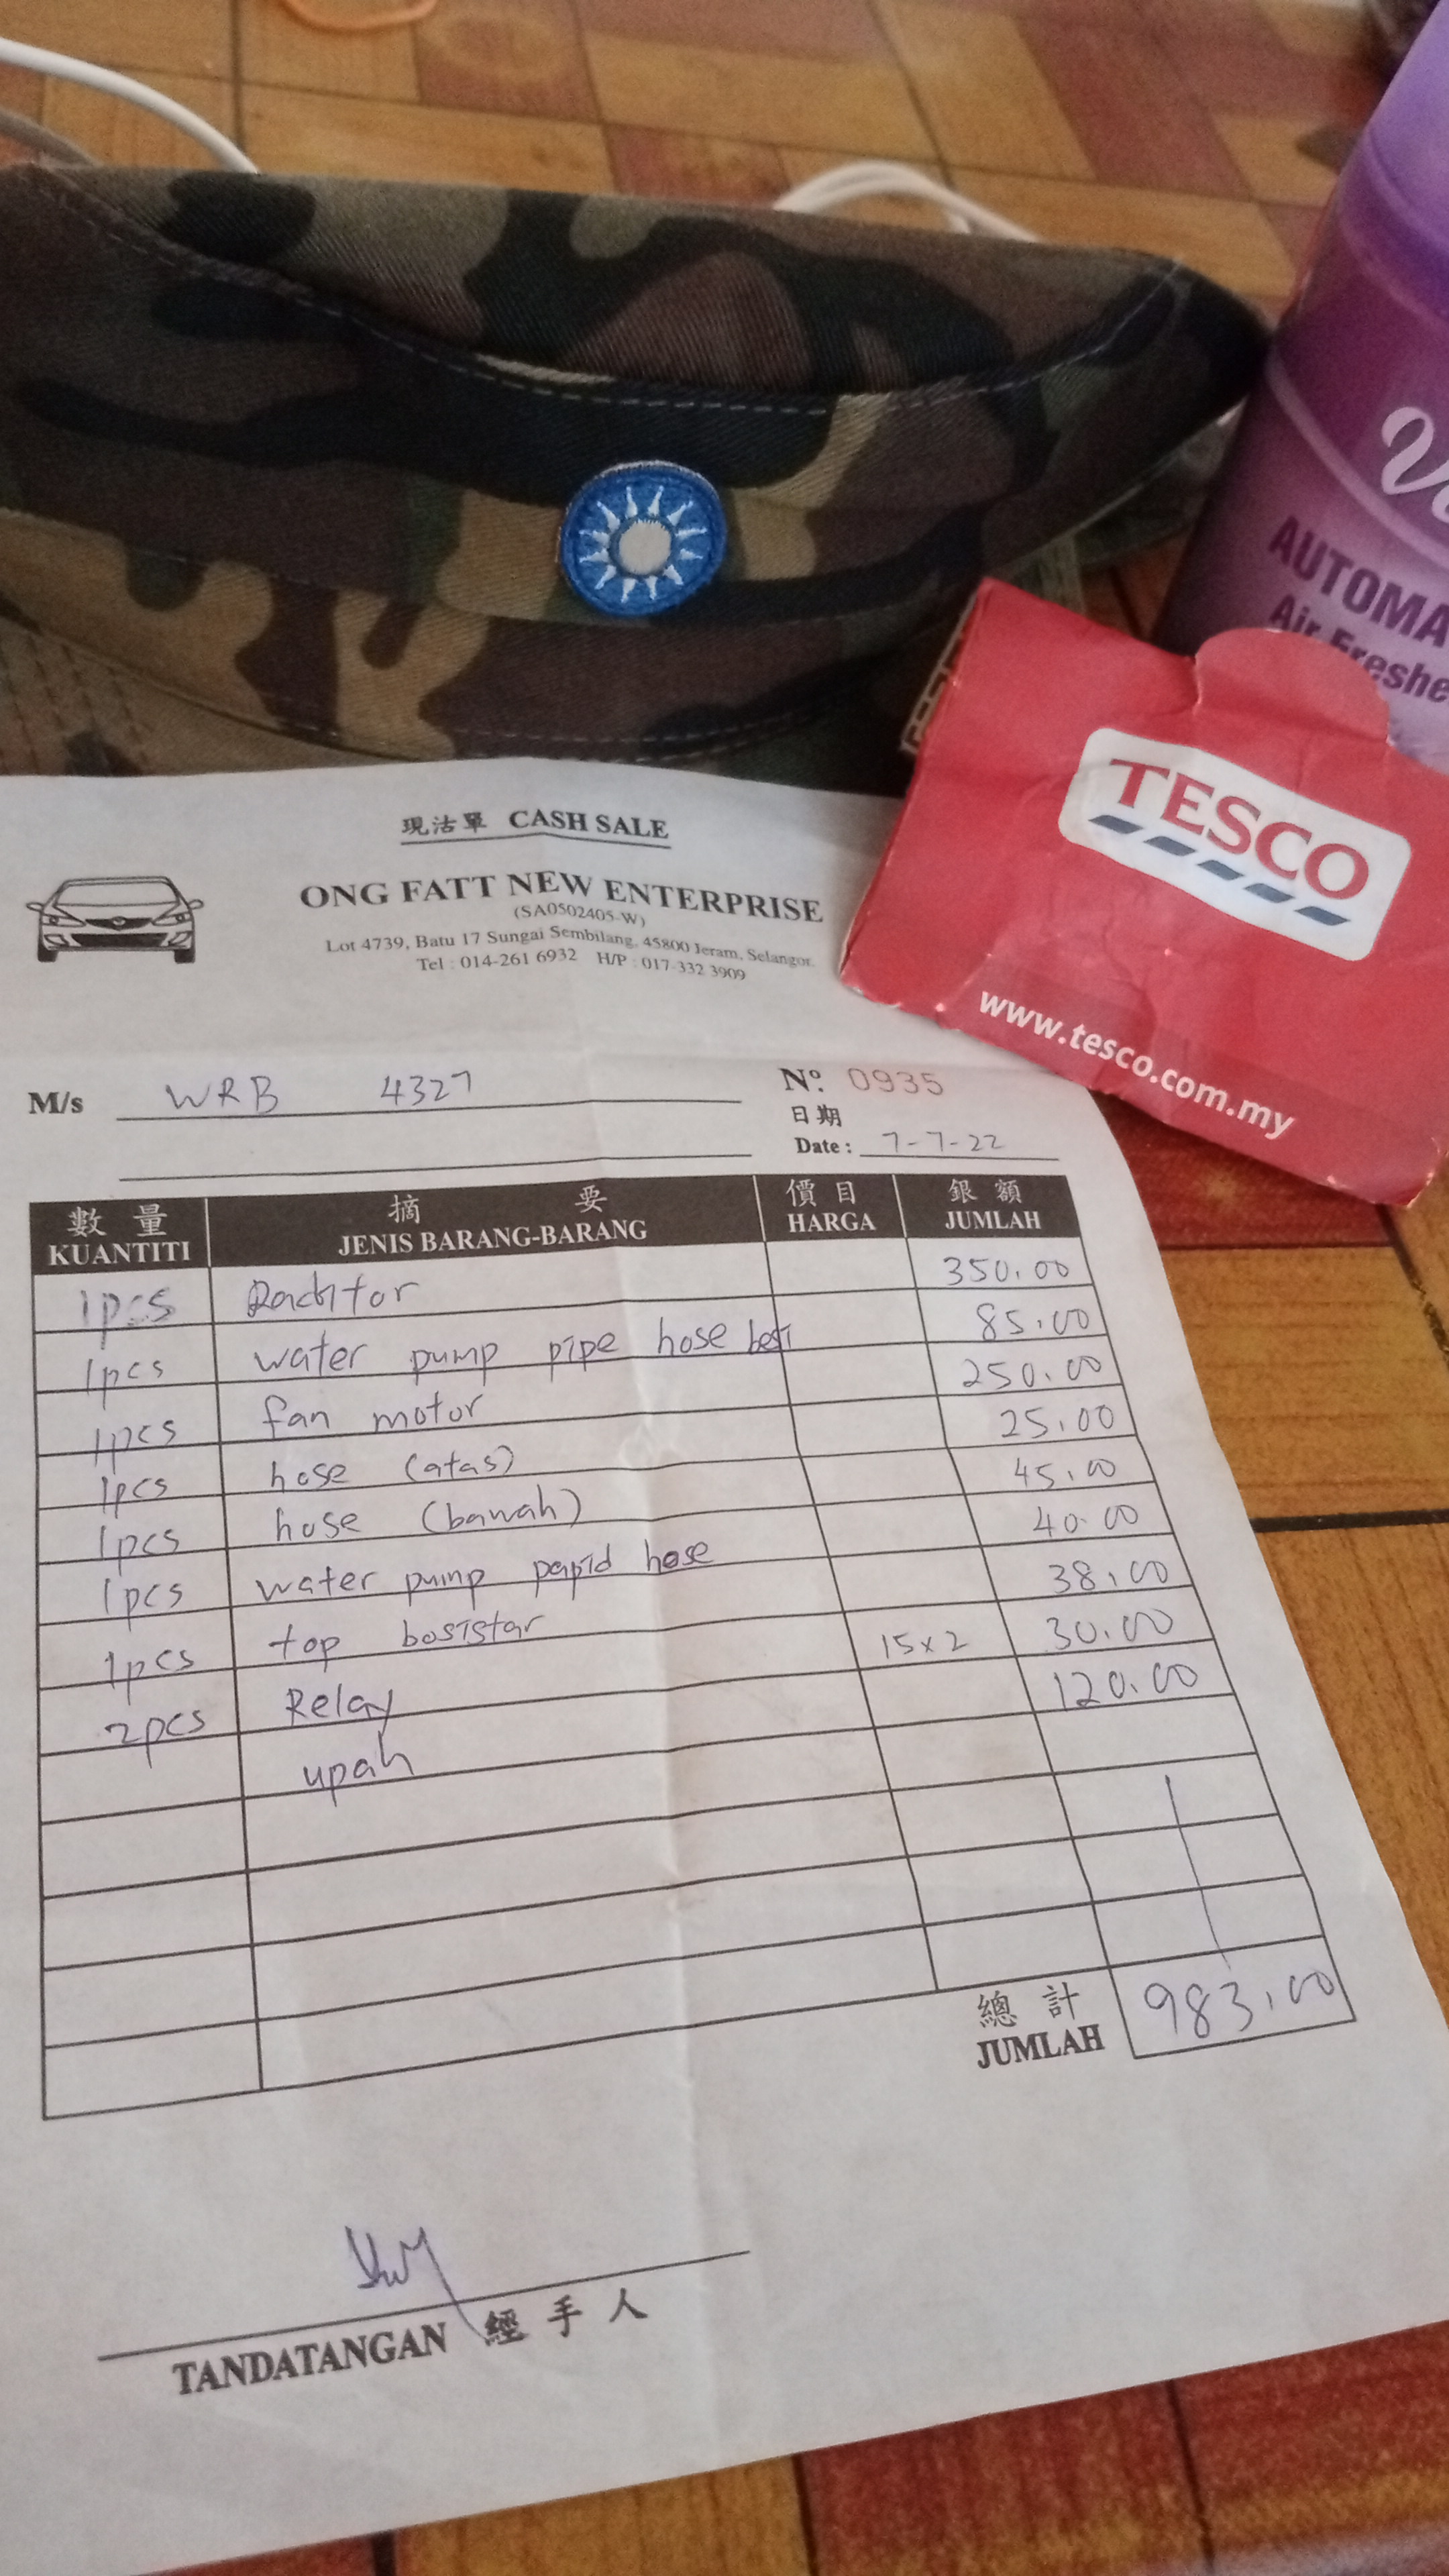 Vi
AUTOMA
Air Freshe
TESCO
www.tesco.com.my
現沽單 CASH SALE
ONG FATT NEW ENTERPRISE
(SA0502405-W)
Lot 4739, Batu 17 Sungai Sembilang, 45800 Jeram, Selangor.
Tel : 014-261 6932 H/P : 017-332 3909
M/s WRB 4327
Nº: 0935
日期
Date : 7-7-22
數量 摘要 價目 銀額
KUANTITI JENIS BARANG-BARANG HARGA JUMLAH
1pcs 350.00
1pcs water pump pipe hose besi 85.00
1pcs fan motor 250.00
1pcs hose (atas) 25.00
1pcs hose (bawah) 45.00
1pcs water pump papid hose 40.00
1pcs top bosistar 38.00
2pcs Relay 15x2 30.00
upah 120.00
總計
JUMLAH 983.00
TANDATANGAN 經手人